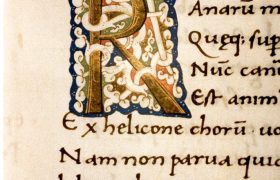 RAnarũ m
Quęq: sup
Nũc can
Est anim
Ex helicone chorũ: uo
Nam non parua quid